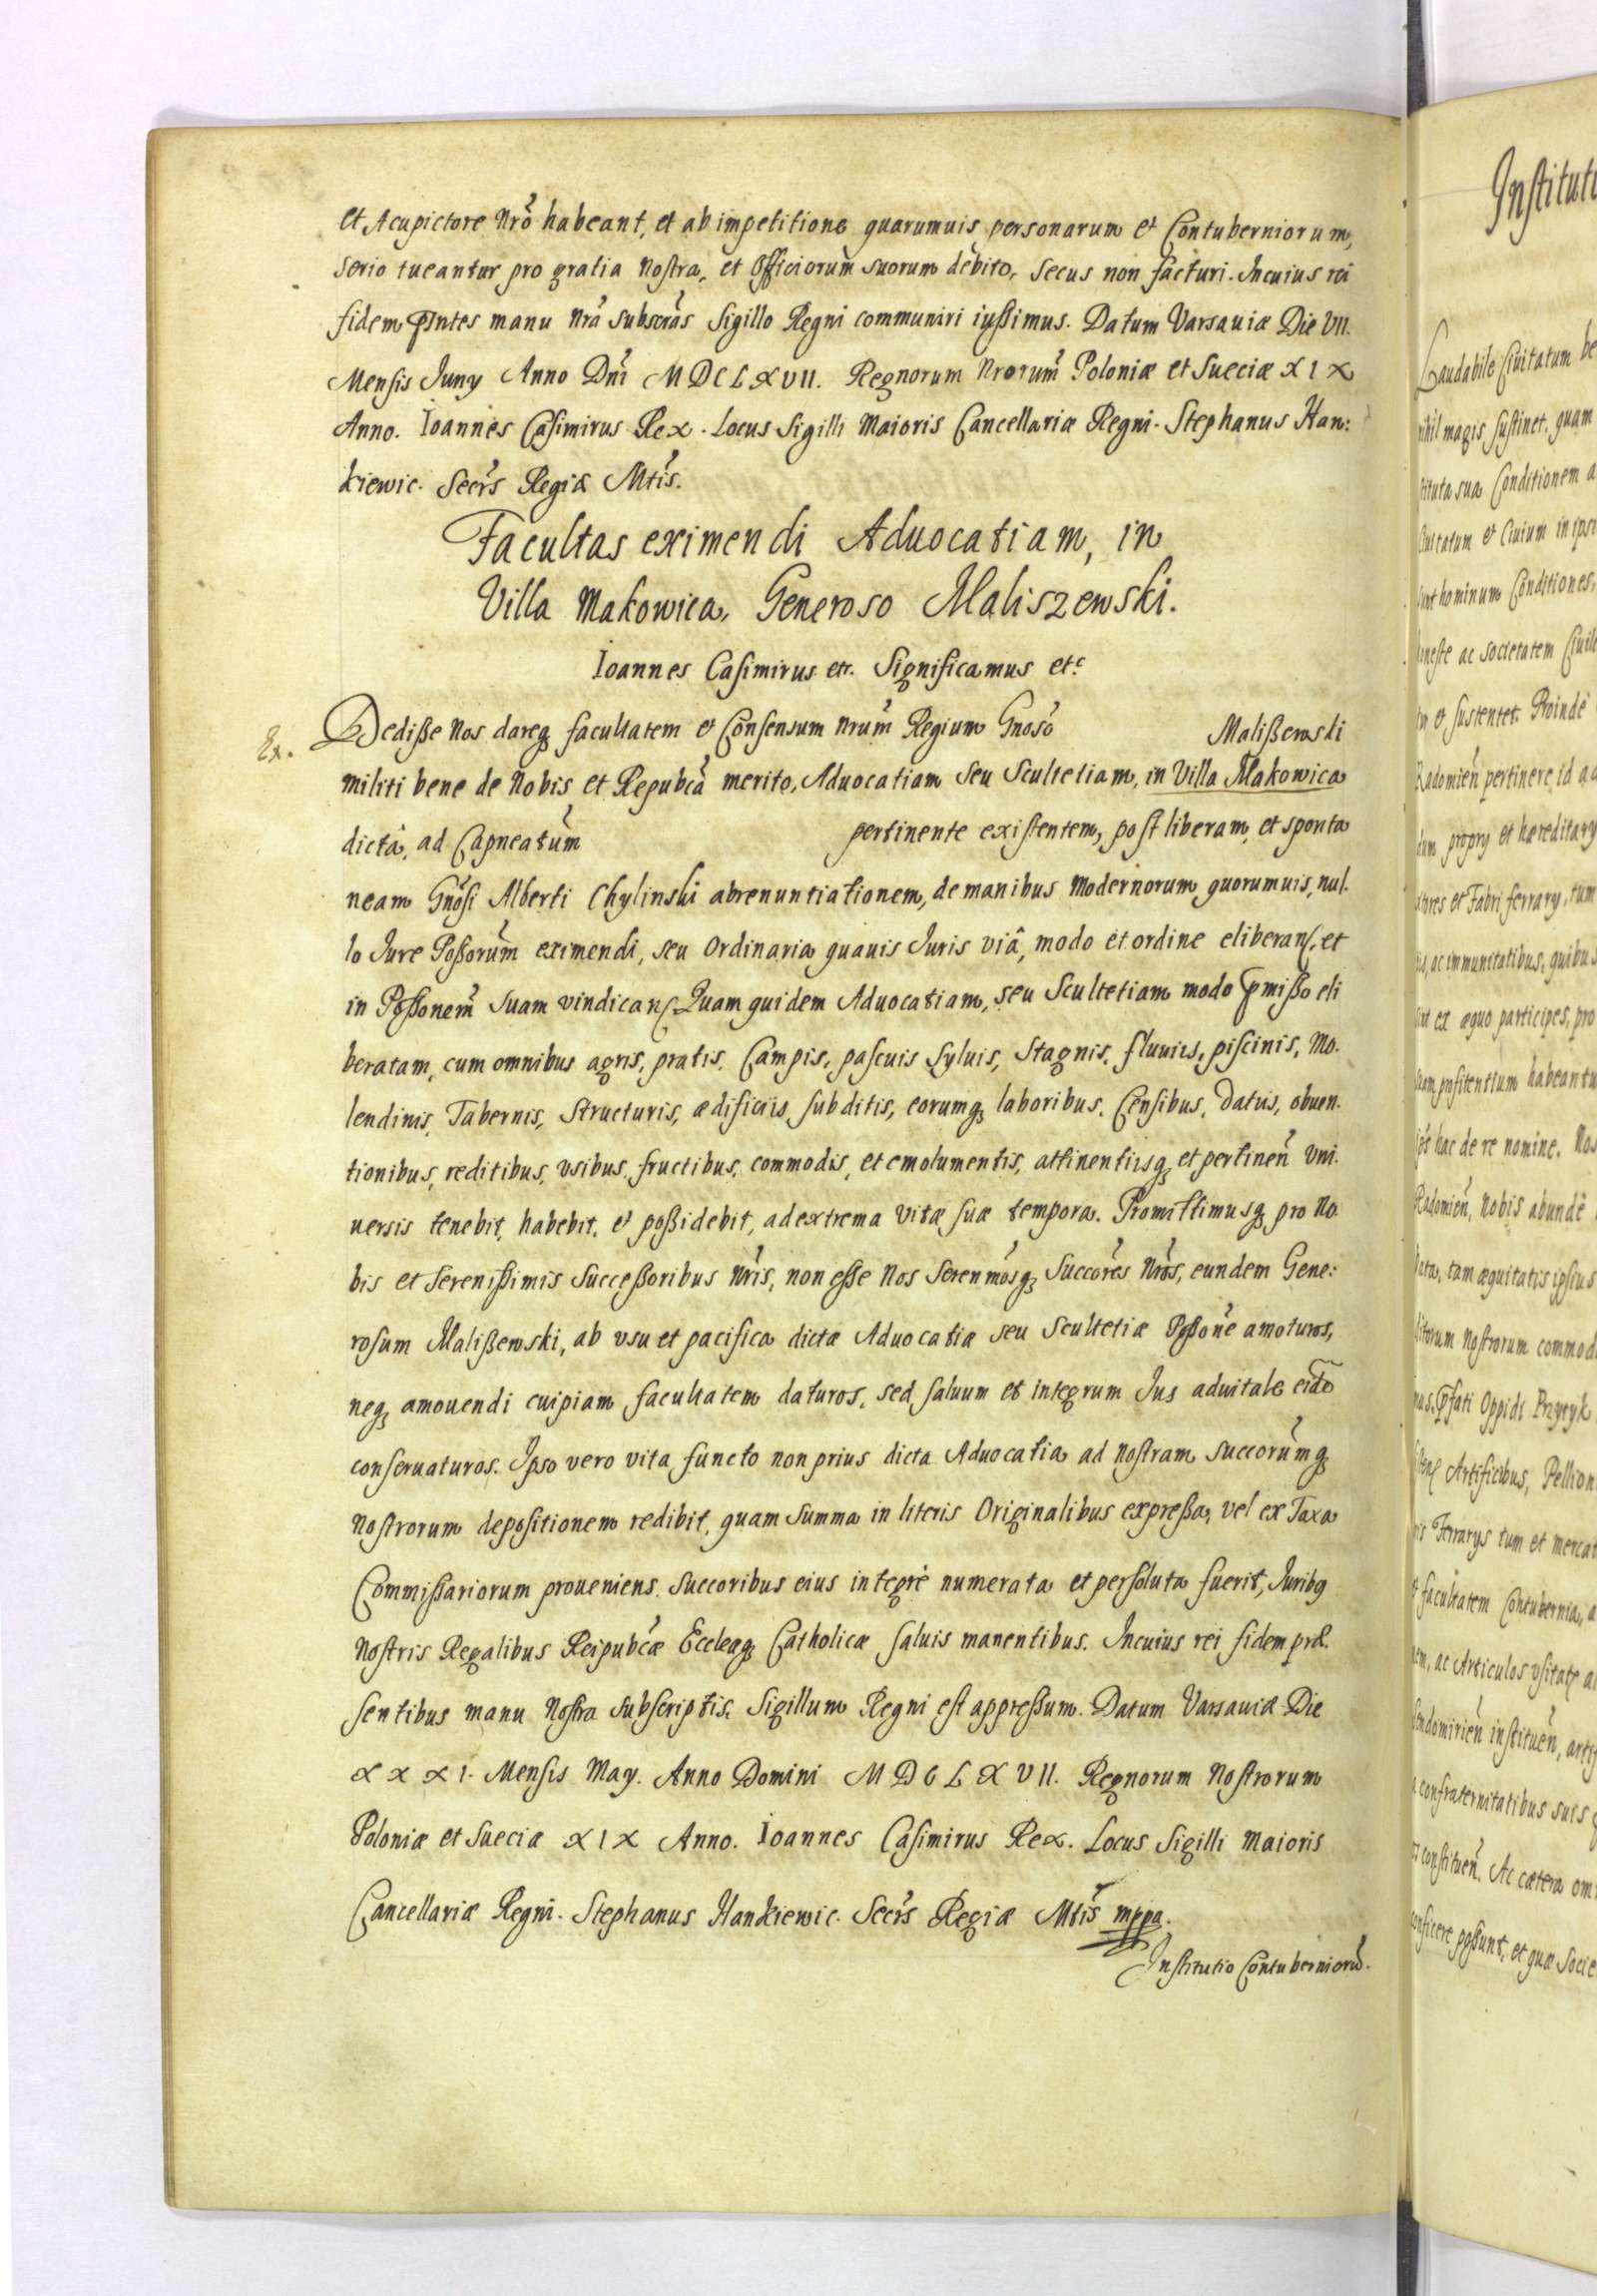 et Acupictore Nrõ habeant, et ab impetitione quarumuis personarum et Contuberniorum,
serio tueantur pro gratia Nostra, et Officiorum suorum debito, secus non facturi. Incuius rei
fidem pñtes manu nrã subscrãs Sigillo Regni communiri iußimus. Datum Varsauiæ Die VII.
Mensis Juny Anno Dñi MDCLXVII. Regnorum Nrorum Poloniæ et Sueciæ XIX
Anno. Ioannes Casimirus Rex. Locus Sigilli Maioris Cancellariæ Regni. Stephanus Han:
kiewic. Secrs Regiæ Mtis.
Facultas eximendi Aduocatiam, in
Villa Makowica, Generoso Maliszewski.
Ioannes Casimirus etc. Significamus etc
Ex. Dediße Nos dareq facultatem et Consensum Nrum Regium Gnoso Malißewski
militi bene de Nobis et Repubca merito, Aduocatiam seu Scultetiam, in Villa Makowica
dicta, ad Capneatum pertinente existentem, post liberam, et sponta
neam Gnosi Alberti Chylinski abrenuntiationem, de manibus modernorum quorumuis, nul.
lo Jure Poßorum eximendi, seu Ordinaria quauis Juris viâ, modo et ordine eliberan, et
in Poßonem suam vindican. Quam quidem Aduocatiam, seu Scultetiam modo pmißo eli
beratam, cum omnibus agris, pratis, Campis, pascuis Syluis, Stagnis, fluuiis, piscinis, Mo.
lendinis, Tabernis, Structuris, ædificiis subditis, eorumq laboribus, Censibus, Datiis, obuen.
tionibus, reditibus, vsibus, fructibus, commodis, et emolumentis, attinentiisq et pertinen vni.
uersis tenebit, habebit, et poßidebit, ad extrema vitæ suæ tempora. Promittimusq pro No
bis et Serenißimis Succeßoribus Nris, non eße Nos Serenmosq Succores Nros, eundem Gene:
rosum Malißewski, ab vsu et pacifica dictæ Aduocatiæ seu Scultetiæ Poßone amoturos,
neq amouendi cuipiam facultatem daturos, sed saluum et integrum Jus aduitale eidẽ
conseruaturos. Ipso vero vita functo non prius dicta Aduocatia ad Nostram Succorumq
Nostrorum depositionem redibit, quam summa in literis Originalibus expreßa, vel ex Taxa
Commißariorum proueniens Succoribus eius integrè numerata et persoluta fuerit, Juribq
Nostris Regalibus Reipubcæ Eccleæq Catholicæ saluis manentibus. Incuius rei fidem præ.
sentibus manu Nostra subscriptis, Sigillum Regni est appreßum. Datum Varsauiæ Die
XXXI. Mensis May. Anno Domini MDCLXVII. Regnorum Nostrorum
Poloniæ et Sueciæ XIX Anno. Ioannes Casimirus Rex. Locus Sigilli Maioris
Cancellariæ Regni. Stephanus Hankiewic. Secrs Regiæ Mtis mppa.
Institutio Contuberniorũ.
Institut
Laudabile Ciuitatum be
nihil magis sustinet, quam
stituta sua Conditionem a
Ciuitatum et Ciuium in ipsi
sunt hominum Conditiones,
honeste ac societatem Ciuile
tur et sustentet. Proindè
Radomien pertinere, id ad
dum propry et hæreditary
xtores et Fabri ferrary, tum
iis, ac immunitatibus, quibus
sint ex æquo participes, pro
habeantu
hac de re nomine. Nos
Radomien, Nobis abundè
data, tam æquitatis ipsius
ditorum Nostrorum commod
pfati Oppidi Przytyk
Artificibus, Pellion
Ferrarys tum et mercat
et facultatem Contubernia, a
nem, ac Articulos vsitate a
Sendomirien instituen, artif
confraternitatibus suis
constituen. Ac cætera om
conficere poßunt, et quæ Socie